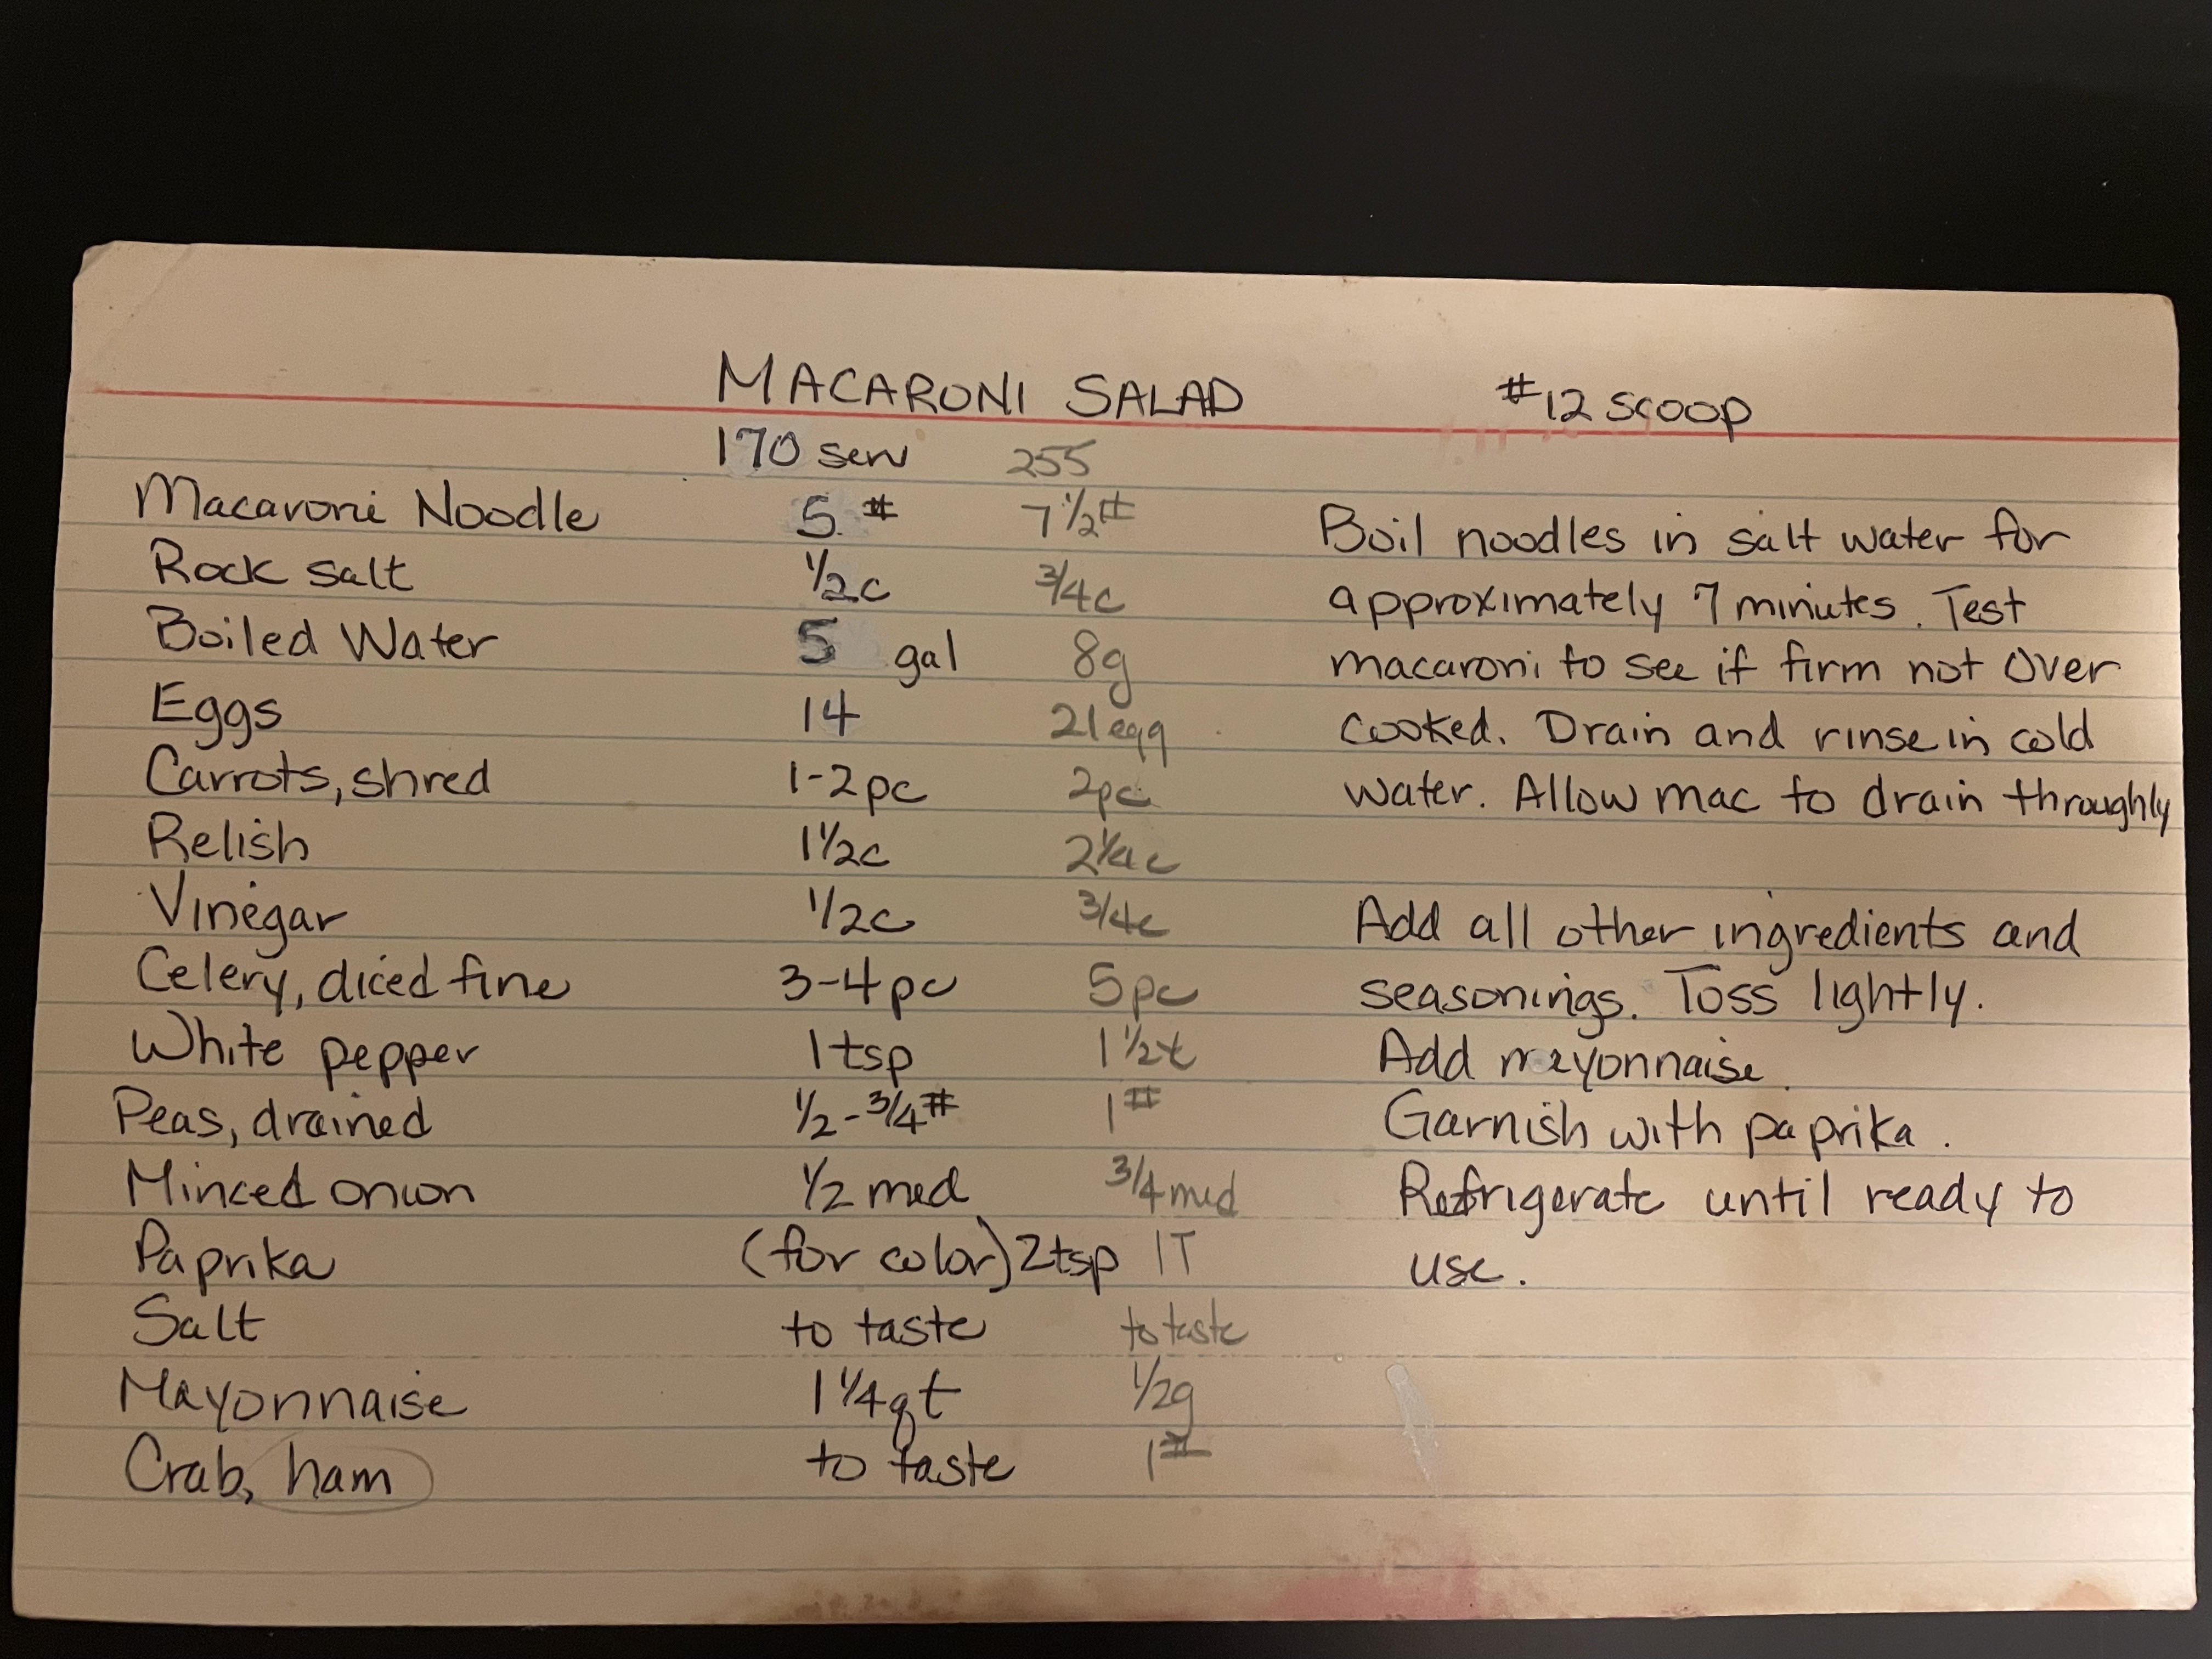 MACARONI SALAD #12 scoop
170 serv 255
Macaroni Noodle 5 # 7 1/2 #
Rock salt 1/2c 3/4c
Boiled Water 5 gal 8g
Eggs 14 21 egg
Carrots, shred 1-2pc 2pc
Relish 1 1/2c 2 1/4c
Vinegar 1/2c 3/4c
Celery, diced fine 3-4pc 5pc
White pepper 1tsp 1 1/2t
Peas, drained 1/2-3/4# 1#
Minced onion 1/2 med 3/4 med
Paprika (for color) 2tsp 1T
Salt to taste to taste
Mayonnaise 1 1/4qt 1/2g
Crab, ham to taste 1#
Boil noodles in salt water for
approximately 7 minutes. Test
macaroni to see if firm not over
cooked. Drain and rinse in cold
water. Allow mac to drain throughly
Add all other ingredients and
seasonings. Toss lightly.
Add mayonnaise.
Garnish with paprika.
Refrigerate until ready to
use.